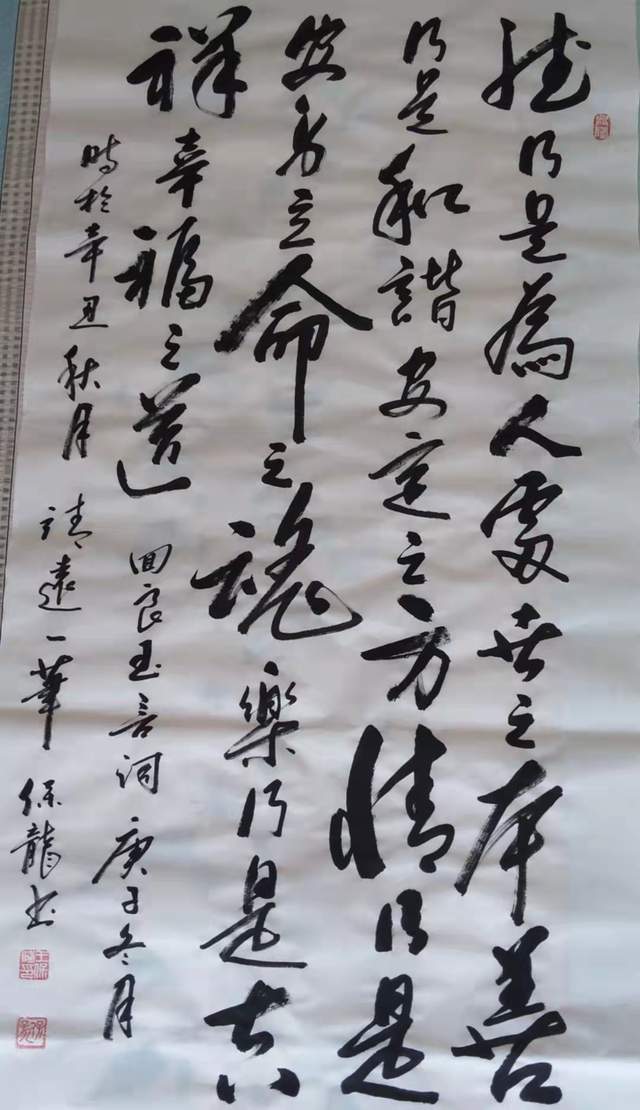 德乃是為人處世之本善
乃是和諧安定之方情乃是
安身立命之魂樂乃是吉
祥幸福之道 回良玉言詞 庚子冬月
時於辛丑秋月 靖遠一 保龍书